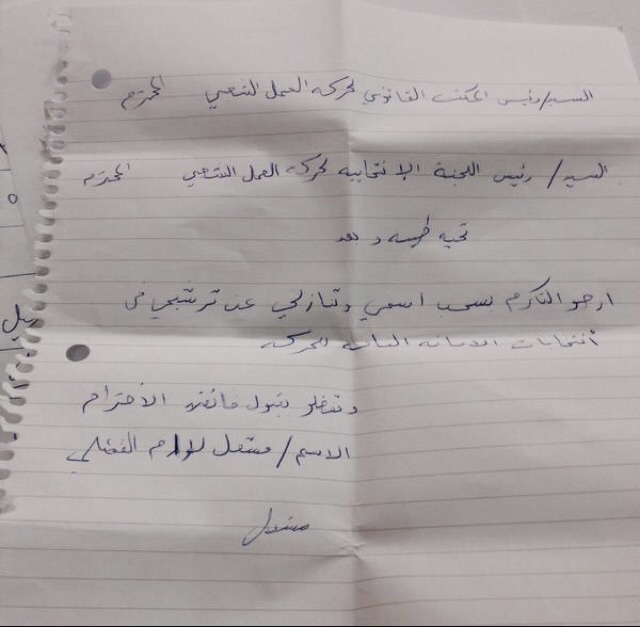 السيد/رئيس المكتب القانوني لحركة العمل الشعبي المحترم
السيد/ رئيس اللجنة الإنتخابيه لحركة العمل الشعبي المحترم
تحيه طيبه وبعد
ارجو التكرم بسحب اسمي وتنازلي عن ترشيحي في
أنتخابات الامانه العامه للحركه
وتفضلو بقبول فائق الأحترام
الاسم/ مشعل الفضلي
مشعل